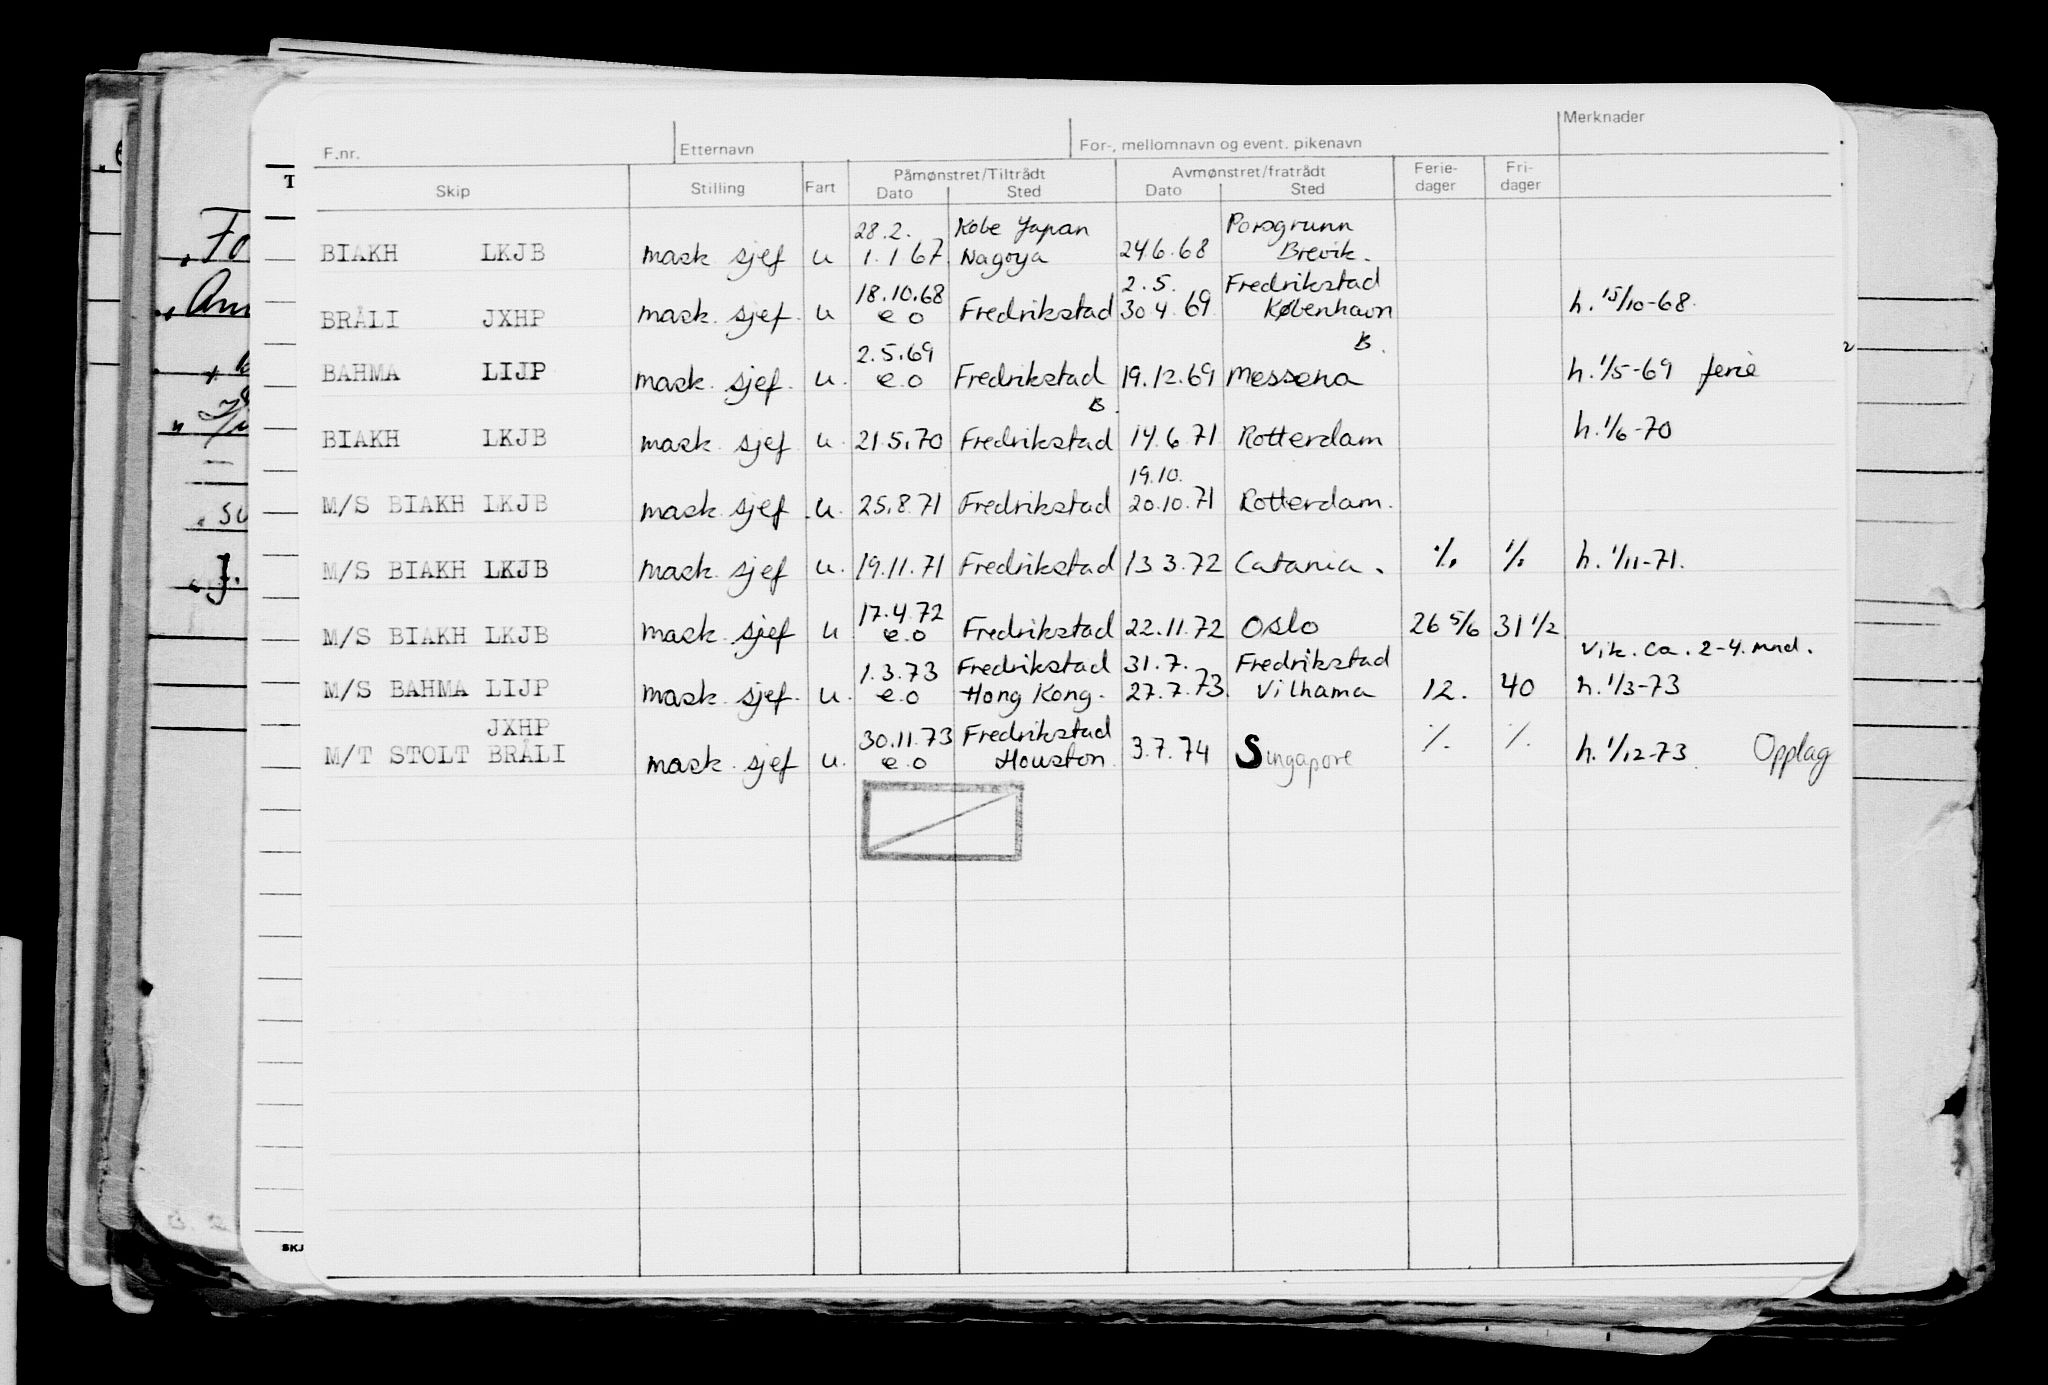 F.nr. Etternavn For-, mellomnavn og event. pikenavn Merknader
Skip Stilling Fart Påmønstret/Tiltrådt Dato Sted Avmønstret/fratrådt Dato Sted Ferie-dager Fri-dager
28.2. Kobe Japan Porsgrunn
BIAKH LKJB mask sjef u 1.1 67 Nagoya 24.6.68 Brevik.
18.10.68 2.5. Fredrikstad
BRÅLI JXHP mask. sjef. u e.o Fredrikstad 30 4. 69 København h. 15/10-68.
2.5.69 B.
BAHMA LIJP mask. sjef. u. e.o Fredrikstad 19.12.69 Messena h. 1/5-69 ferie
B.
BIAKH LKJB mask. sjef u. 21.5.70 Fredrikstad 14.6.71 Rotterdam h. 1/6-70
19.10.
M/S BIAKH LKJB mask. sjef u. 25.8.71 Fredrikstad 20.10.71 Rotterdam.
M/S BIAKH LKJB mask. sjef u. 19.11.71 Fredrikstad 13 3.72 Catania. % % h. 1/11-71.
17.4.72
M/S BIAKH LKJB mask. sjef u e.o Fredrikstad 22.11.72 Oslo 26 5/6 31 1/2
Vik. ca. 2-4. mnd.
1.3.73 Fredrikstad 31.7. Fredrikstad
M/S BAHMA LIJP mask. sjef. u. e.o Hong Kong. 27.7.73. Vilhama 12. 40 h. 1/3-73
JXHP 30.11.73 Fredrikstad
M/T STOLT BRÅLI mask. sjef u. e.o Houston 3.7.74 Singapore % % h. 1/12-73. Opplag
SKJ